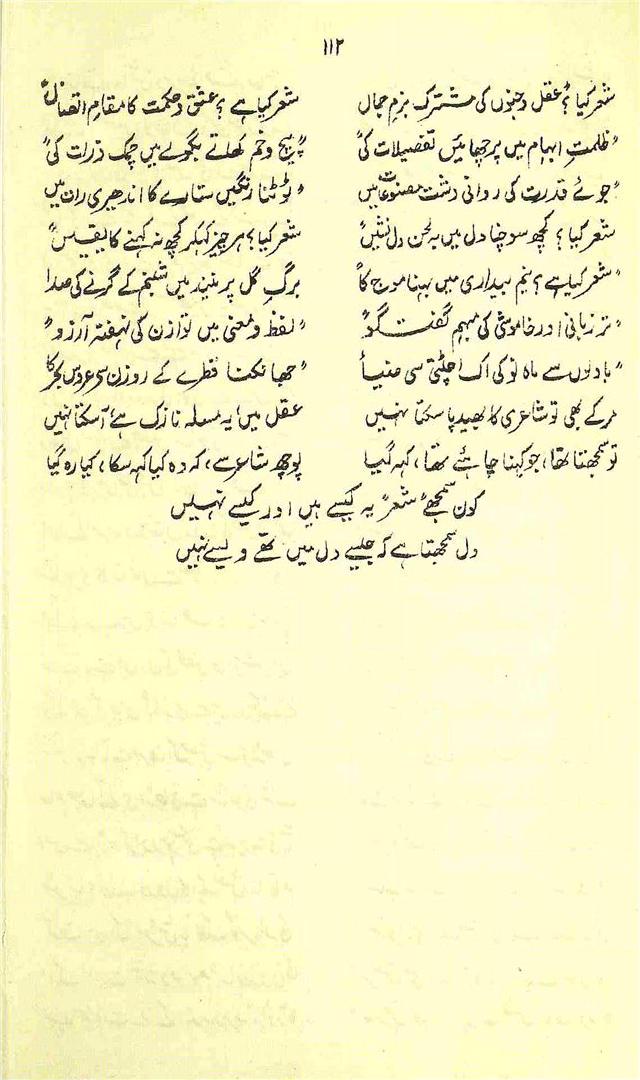 ۱۱۲
شعر کیا؟ عقل و جنوں کی مشترک بزمِ جمال شعر کیا ہے؟ عشق و حکمت کا مقامِ اتصال
"ظلمتِ ابہام میں پرچھائیں تفصیلات کی" "پیچ و خم کھاتے بگولے میں چمک ذرات کی"
"جوئے قدرت کی روانی دشت مصنوعات میں" "ٹوٹنا رنگیں ستارے کا اندھیری رات میں"
شعر کیا؟ کچھ سوچنا دل میں بہ لحن دل نشیں" شعر کیا؟ ہر چیز کہکر کچھ نہ کہنے کا یقیں"
"شعر کیا ہے؟ نیم بیداری میں بہنا موج کا" برگِ گل پر نیند میں شبنم کے گرنے کی صدا
"تر زبانی اور خاموشی کی مبہم گفتگو" "لفظ و معنی میں توازن کی نہفتہ آرزو"
"بادلوں سے ماہِ نو کی اک اچٹتی سی ضیا" "جھانکنا قطرے کے روزن سے عروسِ بحر کا
مر کے بھی تو شاعری کا بھید پا سکتا نہیں عقل میں یہ مسئلہ نازک ہے آ سکتا نہیں
تو سمجھتا تھا، جو کہنا چاہئے تھا، کہہ گیا پوچھ شاعر سے، کہ وہ کیا کہہ سکا، کیا رہ گیا
کون سمجھے "شعر" یہ کیسے ہیں اور کیسے نہیں
دل سمجھتا ہے کہ جیسے دل میں تھے ویسے نہیں